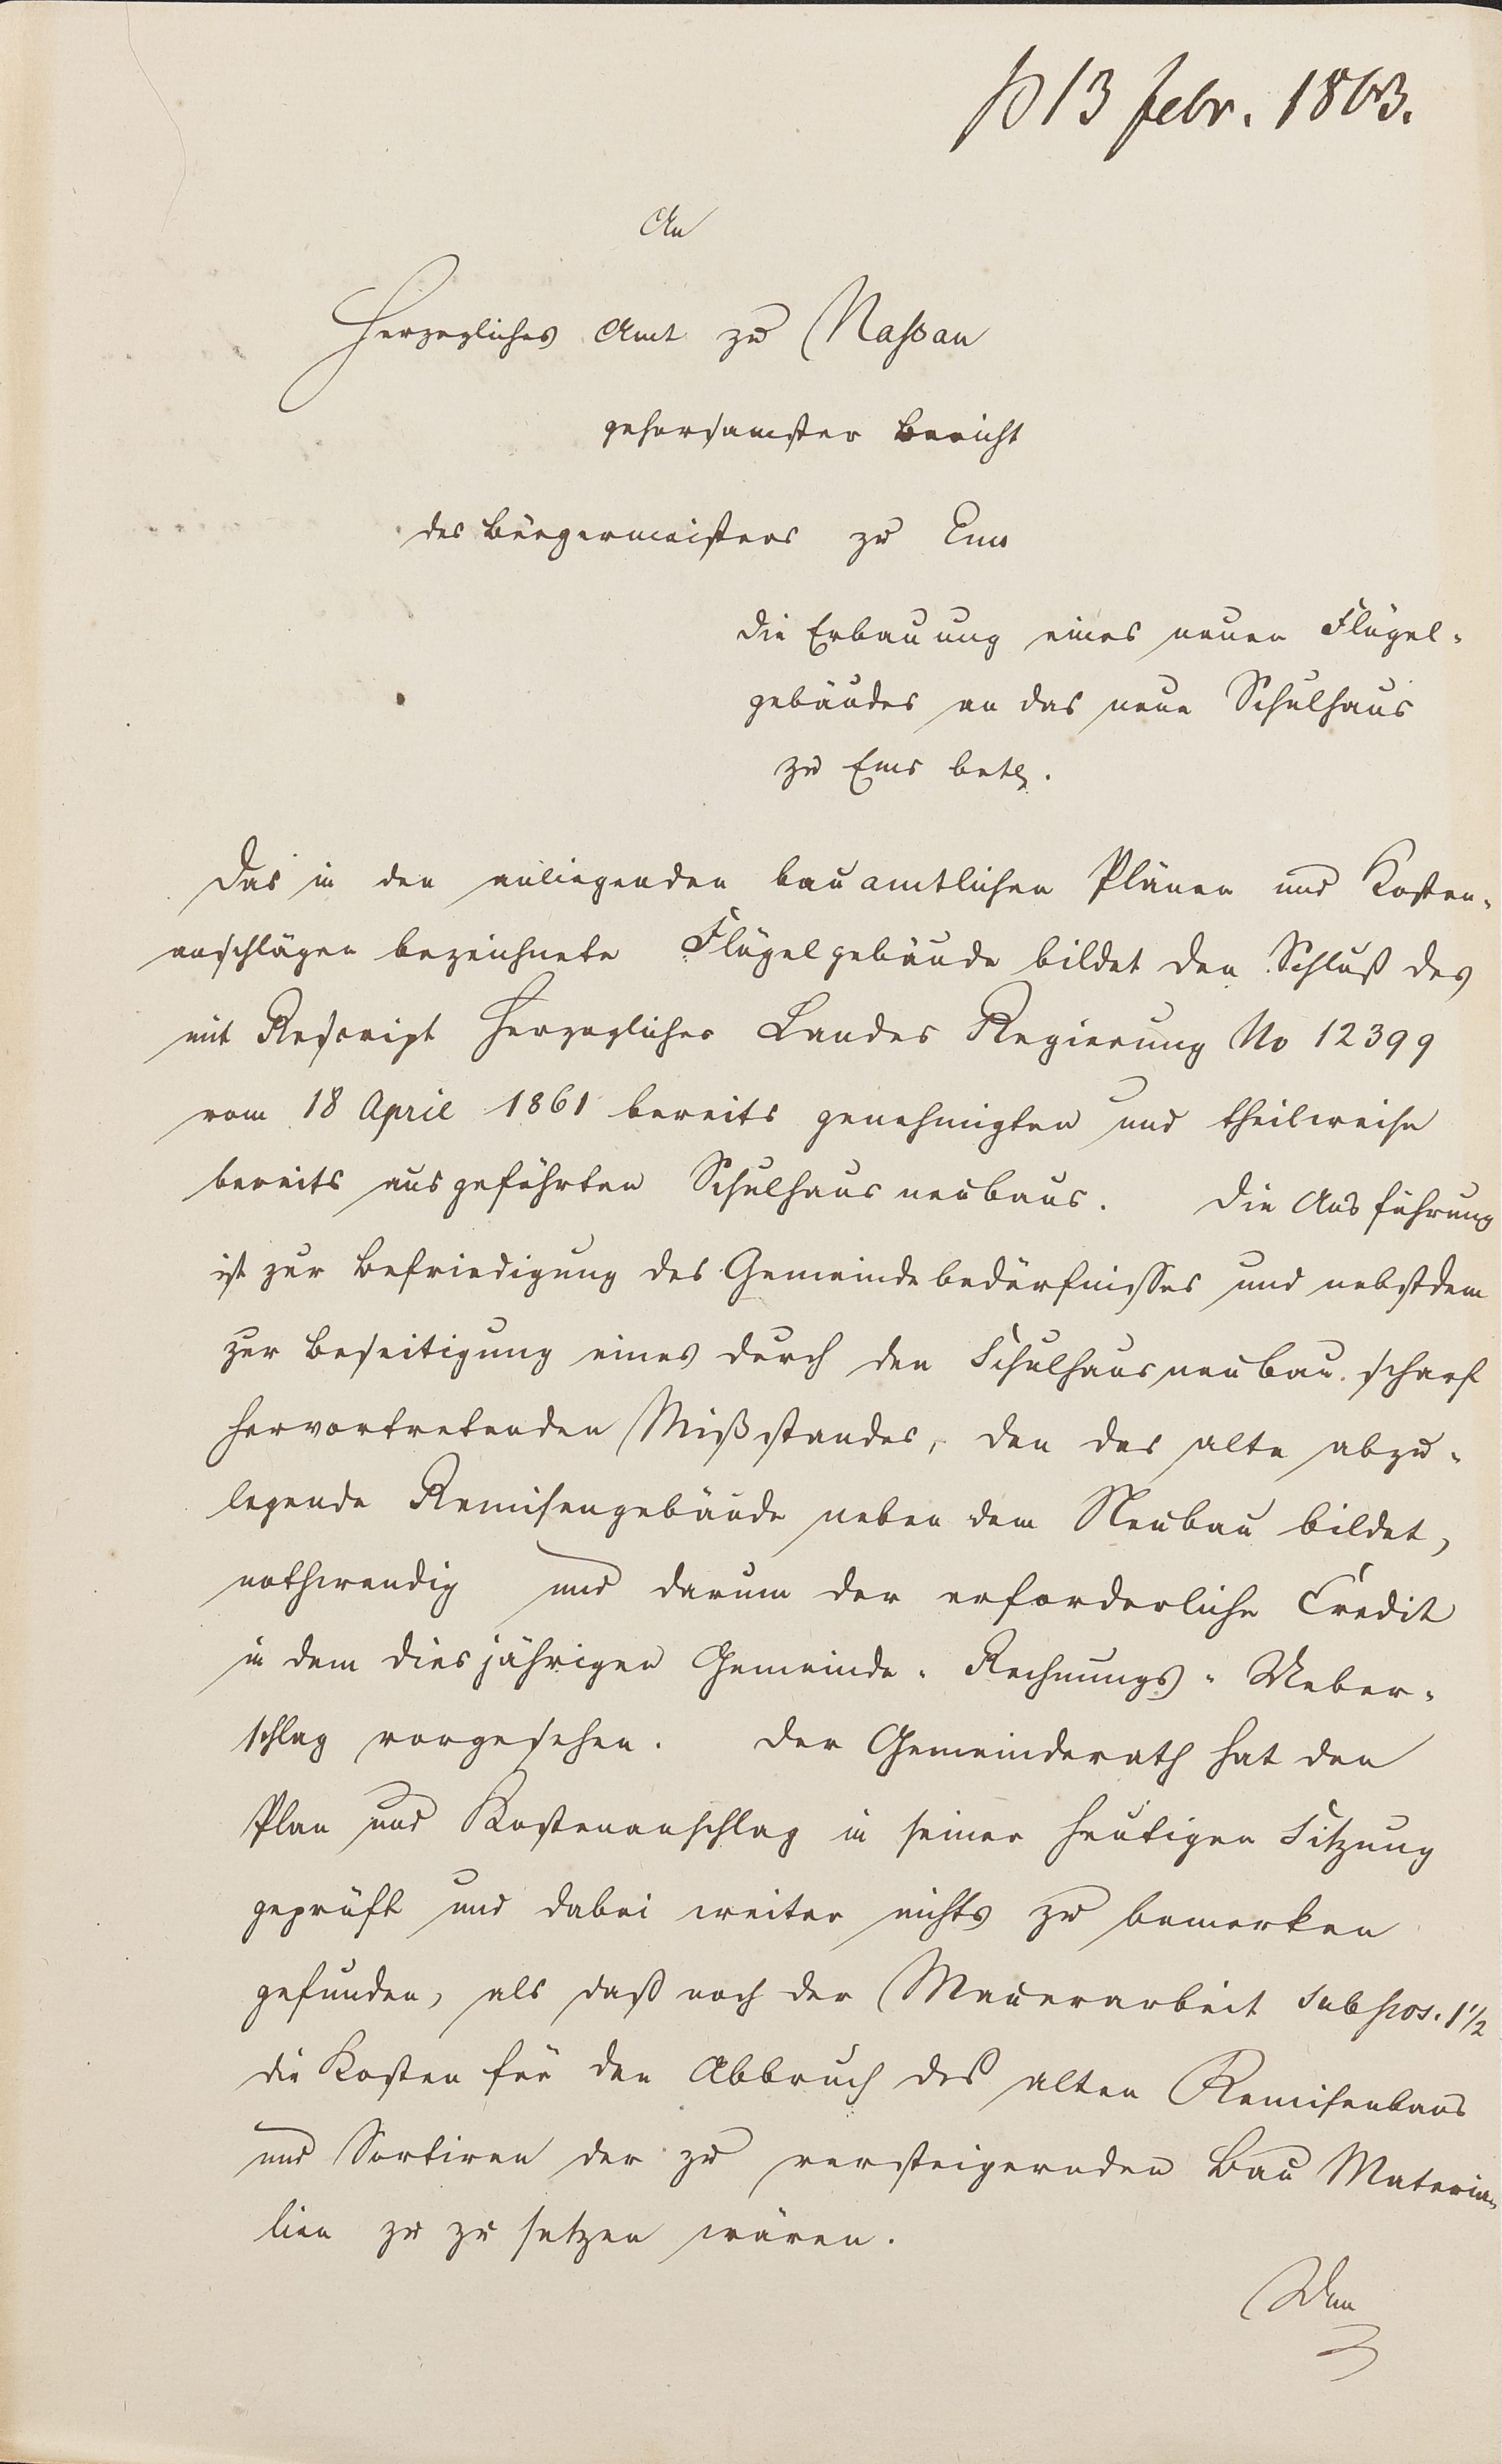 13 Febr. 1863.
An
Herzogliches Amt zu Nassau
gehorsamster Bericht
des Bürgermeisters zu Ems
die Erbauung eines neuen Flügel-
gebäudes an das neue Schulhaus
zu Ems betr.
Das in den anliegenden bauamtlichen Plänen und Kosten-
anschlägen bezeichnete Flügelgebäude bildet den Schluß des
mit Rescript Herzoglicher Landes Regierung No 12399
vom 18 April 1861 bereits genehmigten und theilweise
bereits ausgeführten Schulhausneubaus. Die Ausführung
ist zur Befriedigung des Gemeindebedürfnisses und nebstdem
zur Beseitigung eines durch den Schulhausneubau scharf
hervortretenden Mißstandes, den das alte abzu-
legende Remisengebäude neben dem Neubau bildet,
nothwendig und darum der erforderliche Credit
in dem diesjährigen Gemeinde-Rechnungs-Ueber-
schlag vorgesehen. Der Gemeinderath hat den
Plan und Kostenanschlag in seiner heutigen Sitzung
geprüft und dabei weiter nichts zu bemerken
gefunden, als daß noch der Mauerarbeit sub pos. 1 1/2
die Kosten für den Abbruch des alten Remisenbaus
und Sortiren der zu versteigernden Bau Materia-
lien zu zu setzen wären.